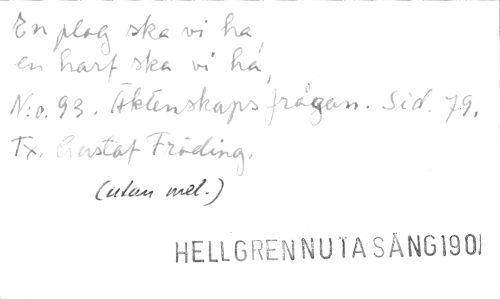 En plog ska vi ha,
en harf ska vi ha,
N:o. 93. Äktenskapsfrågan. Sid. 79.
Tx. Gustaf Fröding.
(utan mel.)
HELLGREN NUTA SÅNG 1901